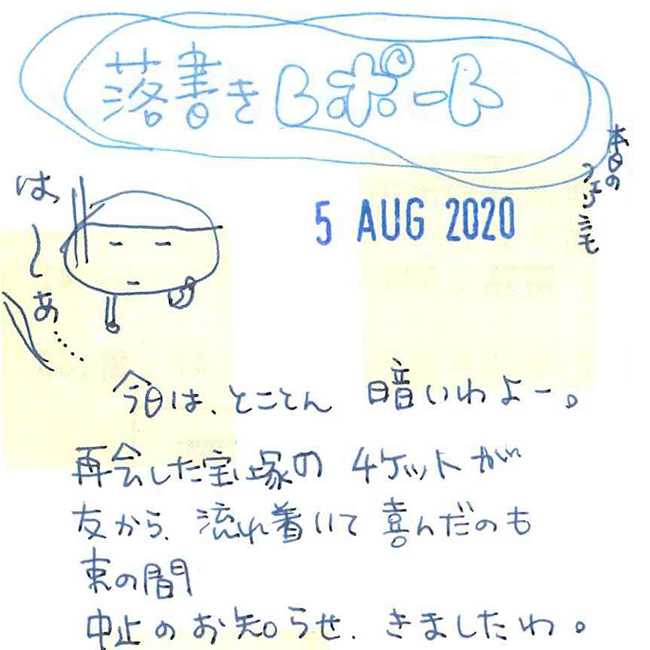 落書きレポート
本日の
5 AUG 2020
はぁ
今日は、とことん 暗いわよー。
再会した宝塚の チケットが
友から、流れ着いて 喜んだのも
束の間
中止のお知らせ、きましたわ。